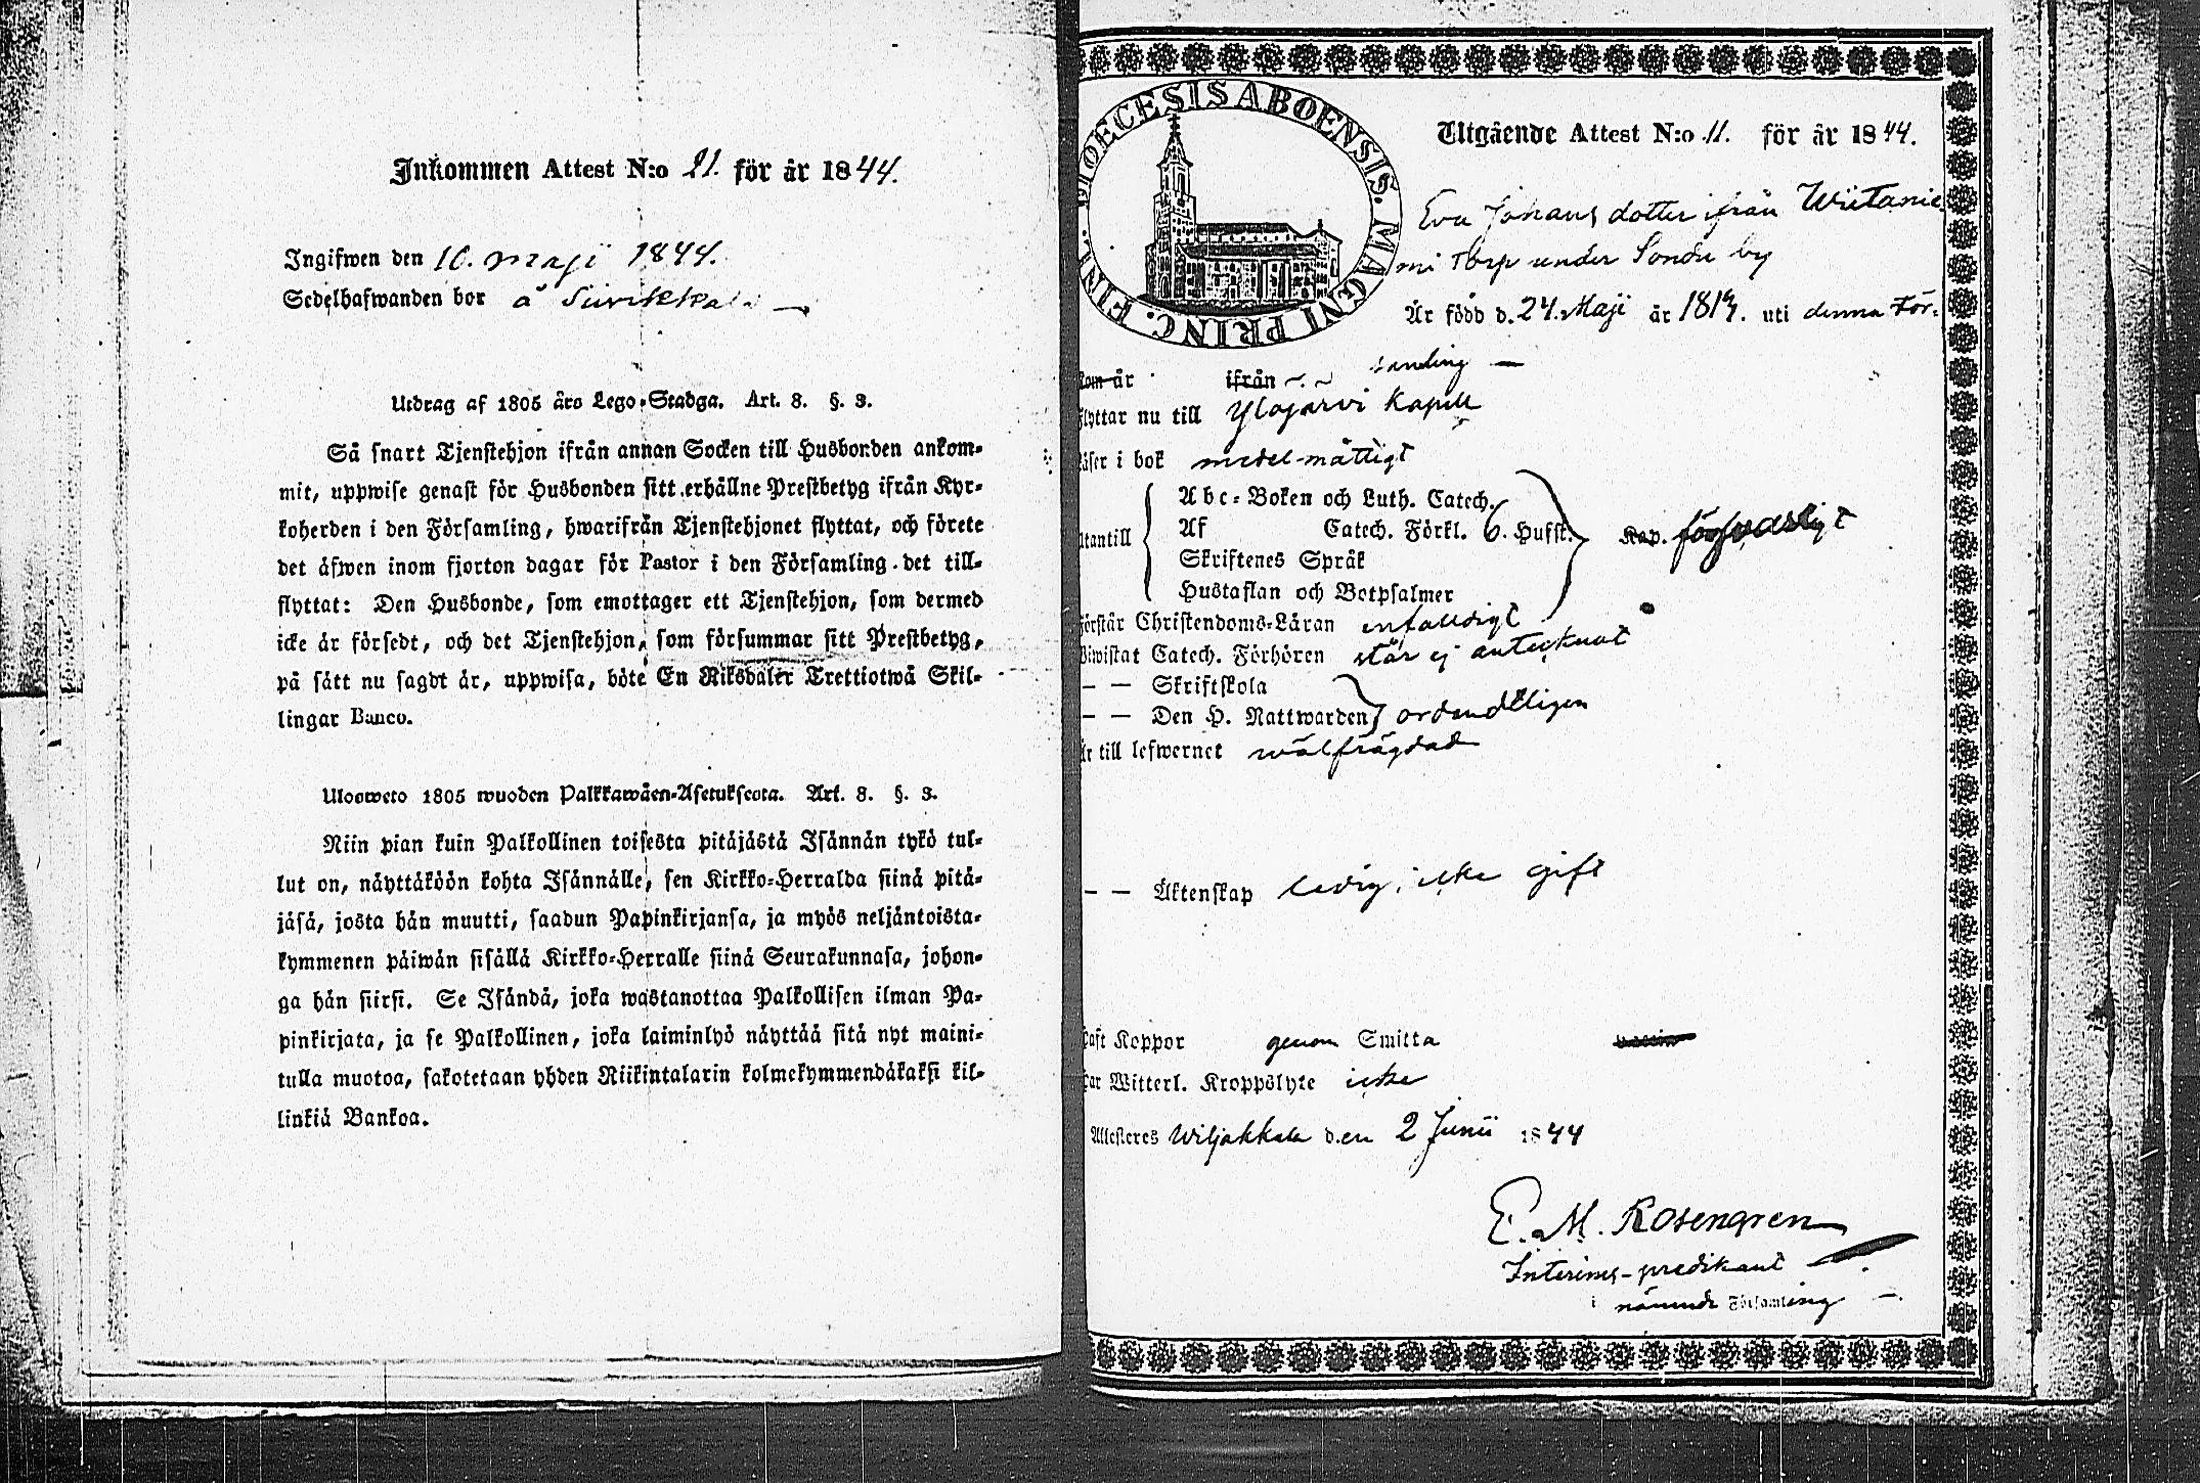 Inkommen Attest N:o 21. för år 1844.
Ingifwen den 10. maji 1844.
Sedelhafwanden bor å Siivikkala
Utdrag af 1805 års Lego-Stadga. Art. 8. §. 3.
Så snart Tjenstehjon ifrån annan Socken till Husbonden ankom-
mit, uppwise genast för Husbonden sitt erhållne Prestbetyg ifrån Kyr-
koherden i den Församling, hwarifrån Tjenstehjonet flyttat, och förete
det äfwen inom fjorton dagar för Pastor i den Församling det till-
flyttat: Den Husbonde, som emottager ett Tjenstehjon, som dermed
icke är försedt, och det Tjenstehjon, som försummar sitt Prestbetyg,
på sätt nu sagdt är, uppwisa, böte En Riksdaler Trettiotwå Skil-
lingar Banco.
Ulosweto 1805 wuoden Palkkawäen-Asetuksesta. Art. 8. §. 3.
Niin pian kuin Palkollinen toisesta pitäjästä Isännän tykö tul-
lut on, näyttäköön kohta Isännälle, sen Kirkko-Herralda siinä pitä-
jäsä, josta hän muutti, saadun Papinkirjansa, ja myös neljäntoista-
kymmenen päiwän sisällä Kirkko-Herralle siinä Seurakunnasa, johon-
ga hän siirsi. Se Isändä, joka wastanottaa Palkollisen ilman Pa-
pinkirjata, ja se Palkollinen, joka laiminlyö näyttää sitä nyt maini-
tulla muotoa, sakotetaan yhden Riikintalarin kolmekymmendäkaksi kil-
linkiä Bankoa.
DIOECESIS ABOENSIS. MAGNI PRINC. FINL.
Utgående Attest N:o 11. för år 1844.
Eva Johans dotter ifrån Wiitanie
mi Torp under Sondu by
Är född d. 24. Maji år 1819. uti denna För-
samling
kom år ifrån
flyttar nu till Ylöjärvi Kapell
läser i bok medelmåttigt
Abc-Boken och Luth. Catech.
utantill Af Catech. Förkl. 6. Hufst. Kap. försvarligt
Skriftenes Språk
Hustaflan och Botpsalmer
förstår Christendoms-Läran enfaldigt
Biwistat Catech. Förhören står ej antecknat
— — Skriftskola
— — Den H. Nattwarden ordendtligen
Är till lefwernet wälfrägdad
— — Äktenskap ledig, icke gift
haft Koppor genom Smitta
har Witterl. Kroppslyte icke
Attesteres Wiljakkala den 2 Junii 1844
E. M. Rosengren
Interims-predikant
i nämnde Församling